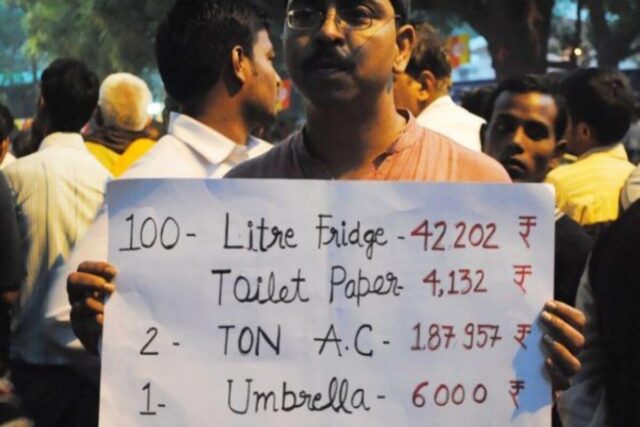 100- Litre Fridge - 42202 ₹
Toilet Paper- 4,132 ₹
2- TON A.C- 187957 ₹
1- Umbrella- 6000 ₹